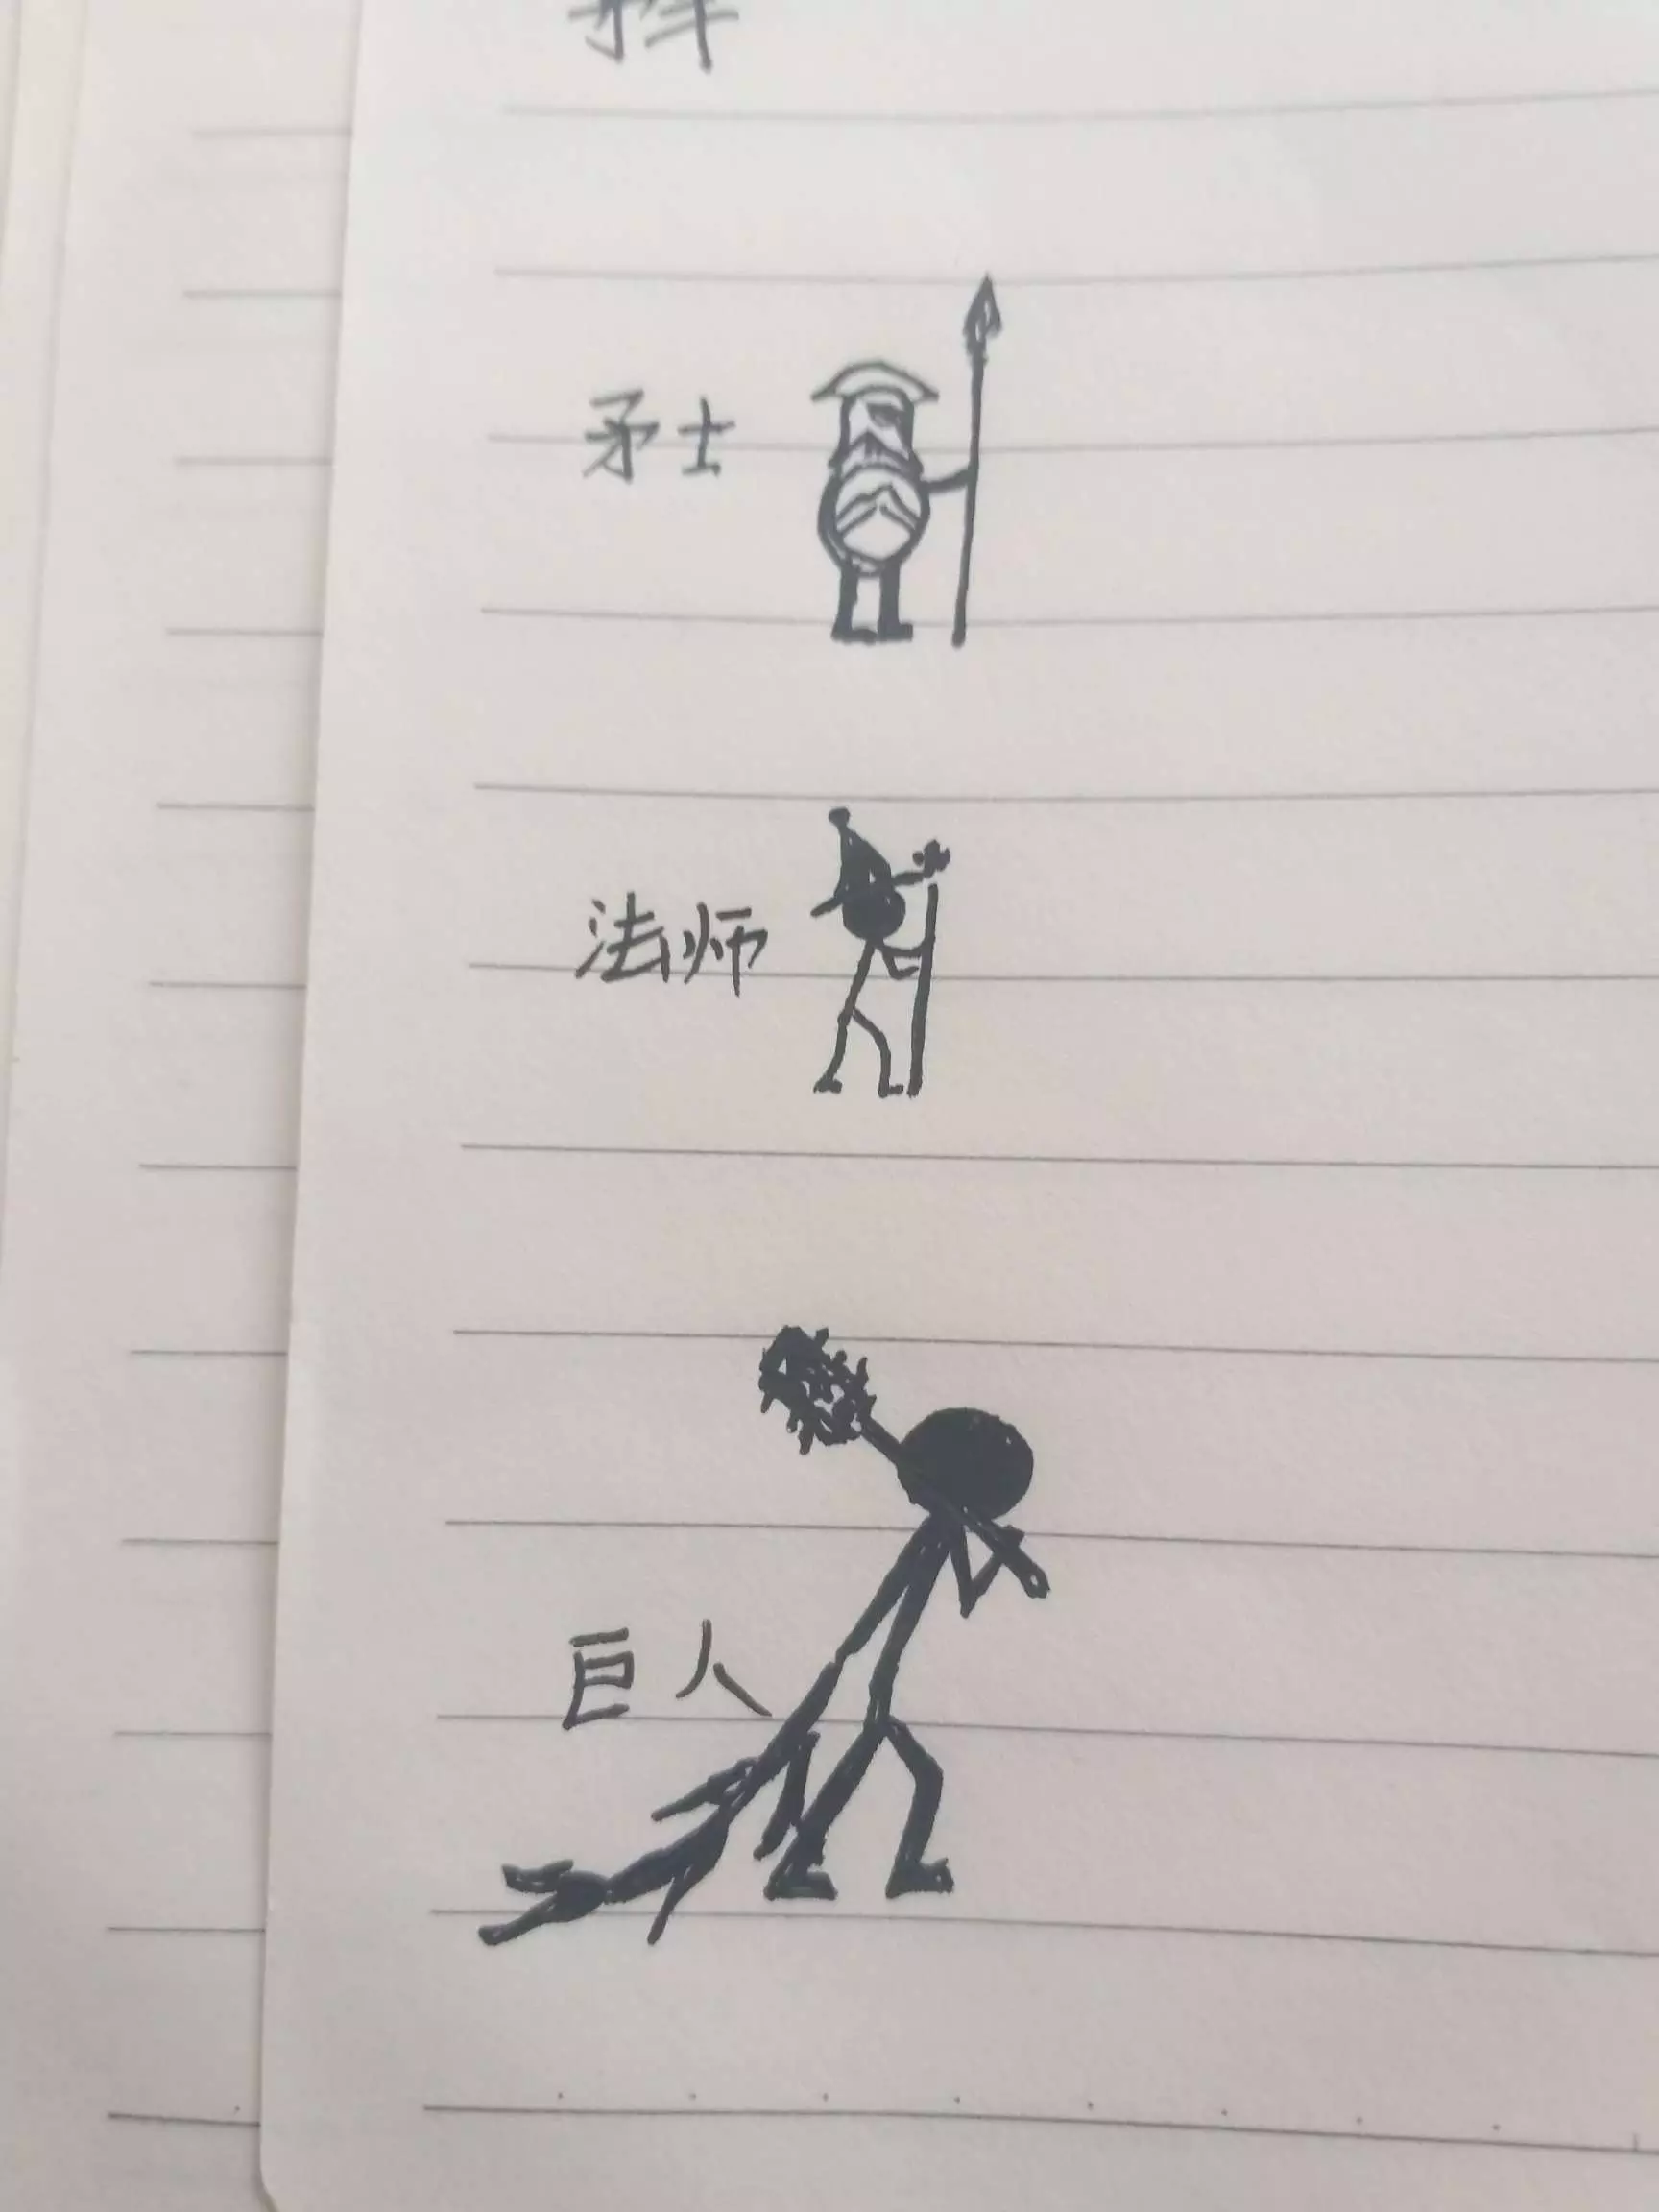 矛士
法师
巨人